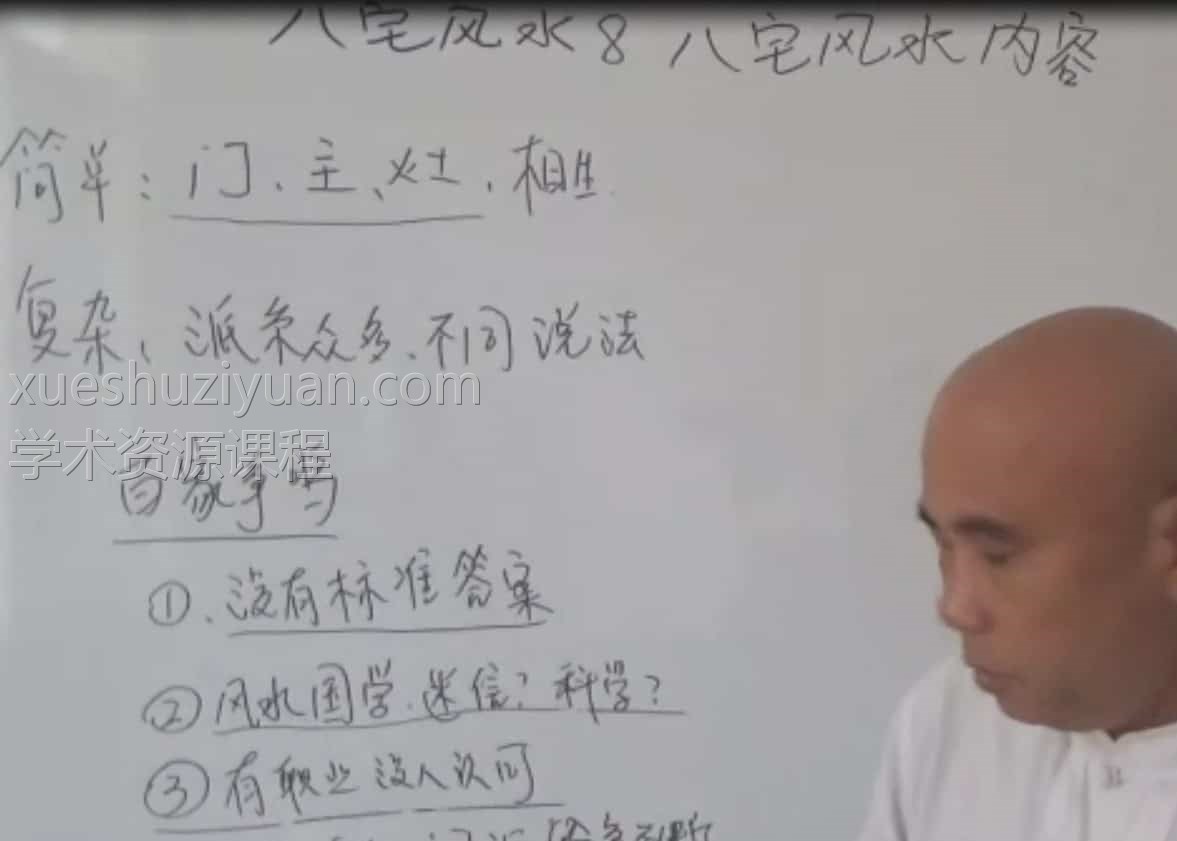 八宅风水8 八宅风水内容
简单：门、主、灶、相生
复杂、派系众多、不同说法
xueshuziyuan.com
学术资源课程
百家争鸣
①、没有标准答案
②风水国学、迷信？科学？
③有职业没人认可